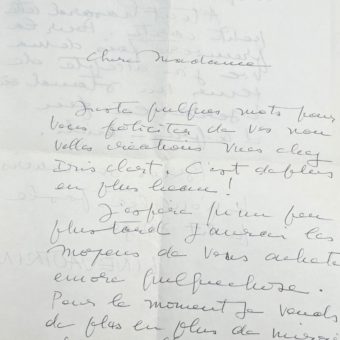 Chère Madame
Juste quelques mots pour
vous féliciter de vos nou
velles créations vues chez
C'est de plus
en plus beau!
J'espère qu'un peu
plus tard j'aurai les
moyens de vous acheter
encore quelquechose.
Pour le moment je vends
de plus en plus de